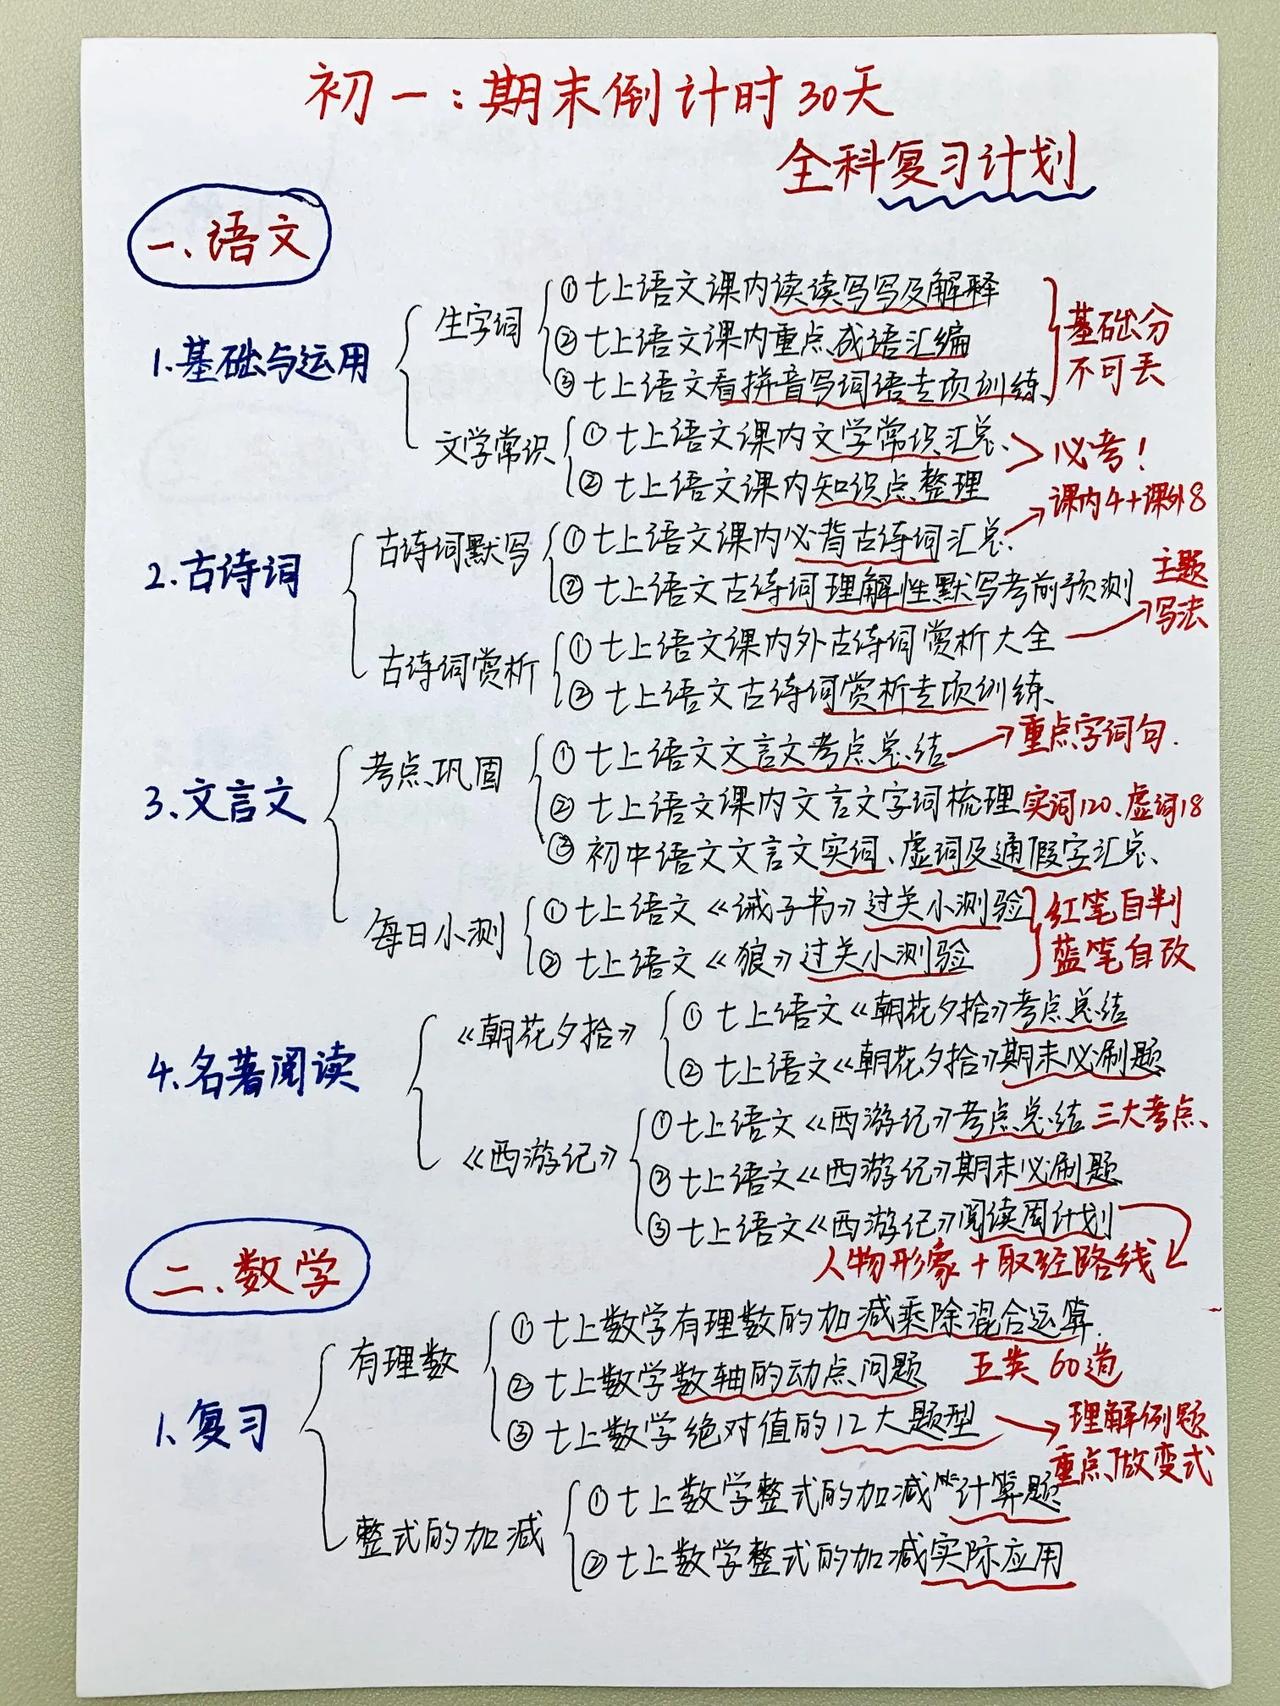 初一:期末倒计时30天
全科复习计划
一、语文
1.基础与运用
生字词
①七上语文课内读读写写及解释
②七上语文课内重点成语汇编
③七上语文看拼音写词语专项训练
基础分
不可丢
文学常识
①七上语文课内文学常识汇总
②七上语文课内知识点整理
必考!
2.古诗词
古诗词默写
①七上语文课内必背古诗词汇总
课内4+课外8
②七上语文古诗词理解性默写考前预测
古诗词赏析
①七上语文课内外古诗词赏析大全
主题
写法
②七上语文古诗词赏析专项训练
3.文言文
考点巩固
①七上语文文言文考点总结
重点字词句.
②七上语文课内文言文字词梳理 实词120、虚词18
③初中语文文言文实词、虚词及通假字汇总
每日小测
①七上语文《诫子书》过关小测验
②七上语文《狼》过关小测验
红笔自判
蓝笔自改
4.名著阅读
《朝花夕拾》
①七上语文《朝花夕拾》考点总结
②七上语文《朝花夕拾》期末必刷题
《西游记》
①七上语文《西游记》考点总结 三大考点
②七上语文《西游记》期末必刷题
③七上语文《西游记》阅读周计划
人物形象+取经路线
二、数学
1、复习
有理数
①七上数学有理数的加减乘除混合运算
②七上数学数轴的动点问题 五类60道
③七上数学绝对值的12大题型
理解例题
重点做变式
整式的加减
①七上数学整式的加减计算题
②七上数学整式的加减实际应用